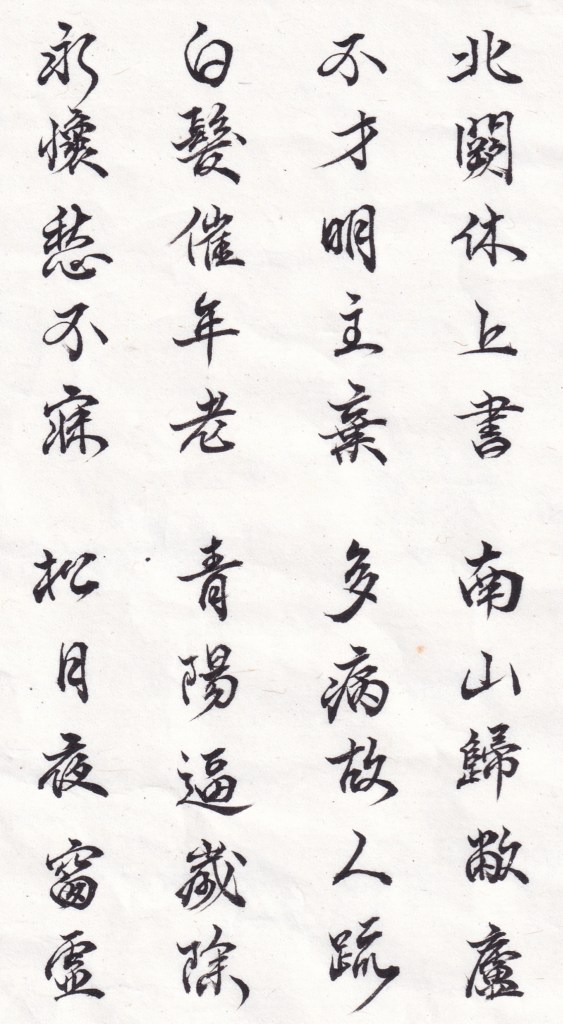 北闕休上書 南山歸敝廬
不才明主棄 多病故人疏
白髮催年老 青陽逼歲除
永懷愁不寐 松月夜窗虛